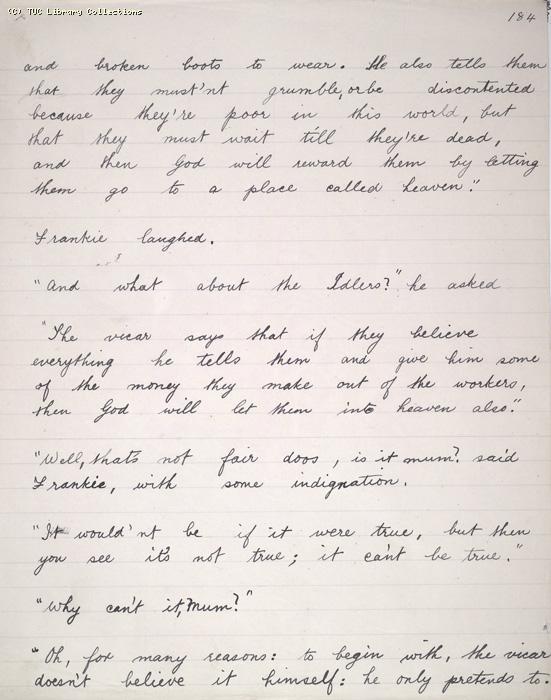 (C) TUC Library Collections
184
and broken boots to wear. He also tells them
that they must'nt grumble, or be discontented
because they're poor in this world, but
that they must wait till they're dead,
and then God will reward them by letting
them go to a place called heaven."
Frankie laughed.
"And what about the Idlers?" he asked
"The vicar says that if they believe
everything he tells them and give him some
of the money they make out of the workers,
then God will let them into heaven also."
"Well, thats not fair doos, is it mum? said
Frankie, with some indignation.
"It would'nt be if it were true, but then
you see it's not true; it can't be true."
"Why can't it, Mum?"
"Oh, for many reasons: to begin with, the vicar
doesn't believe it himself: he only pretends to.